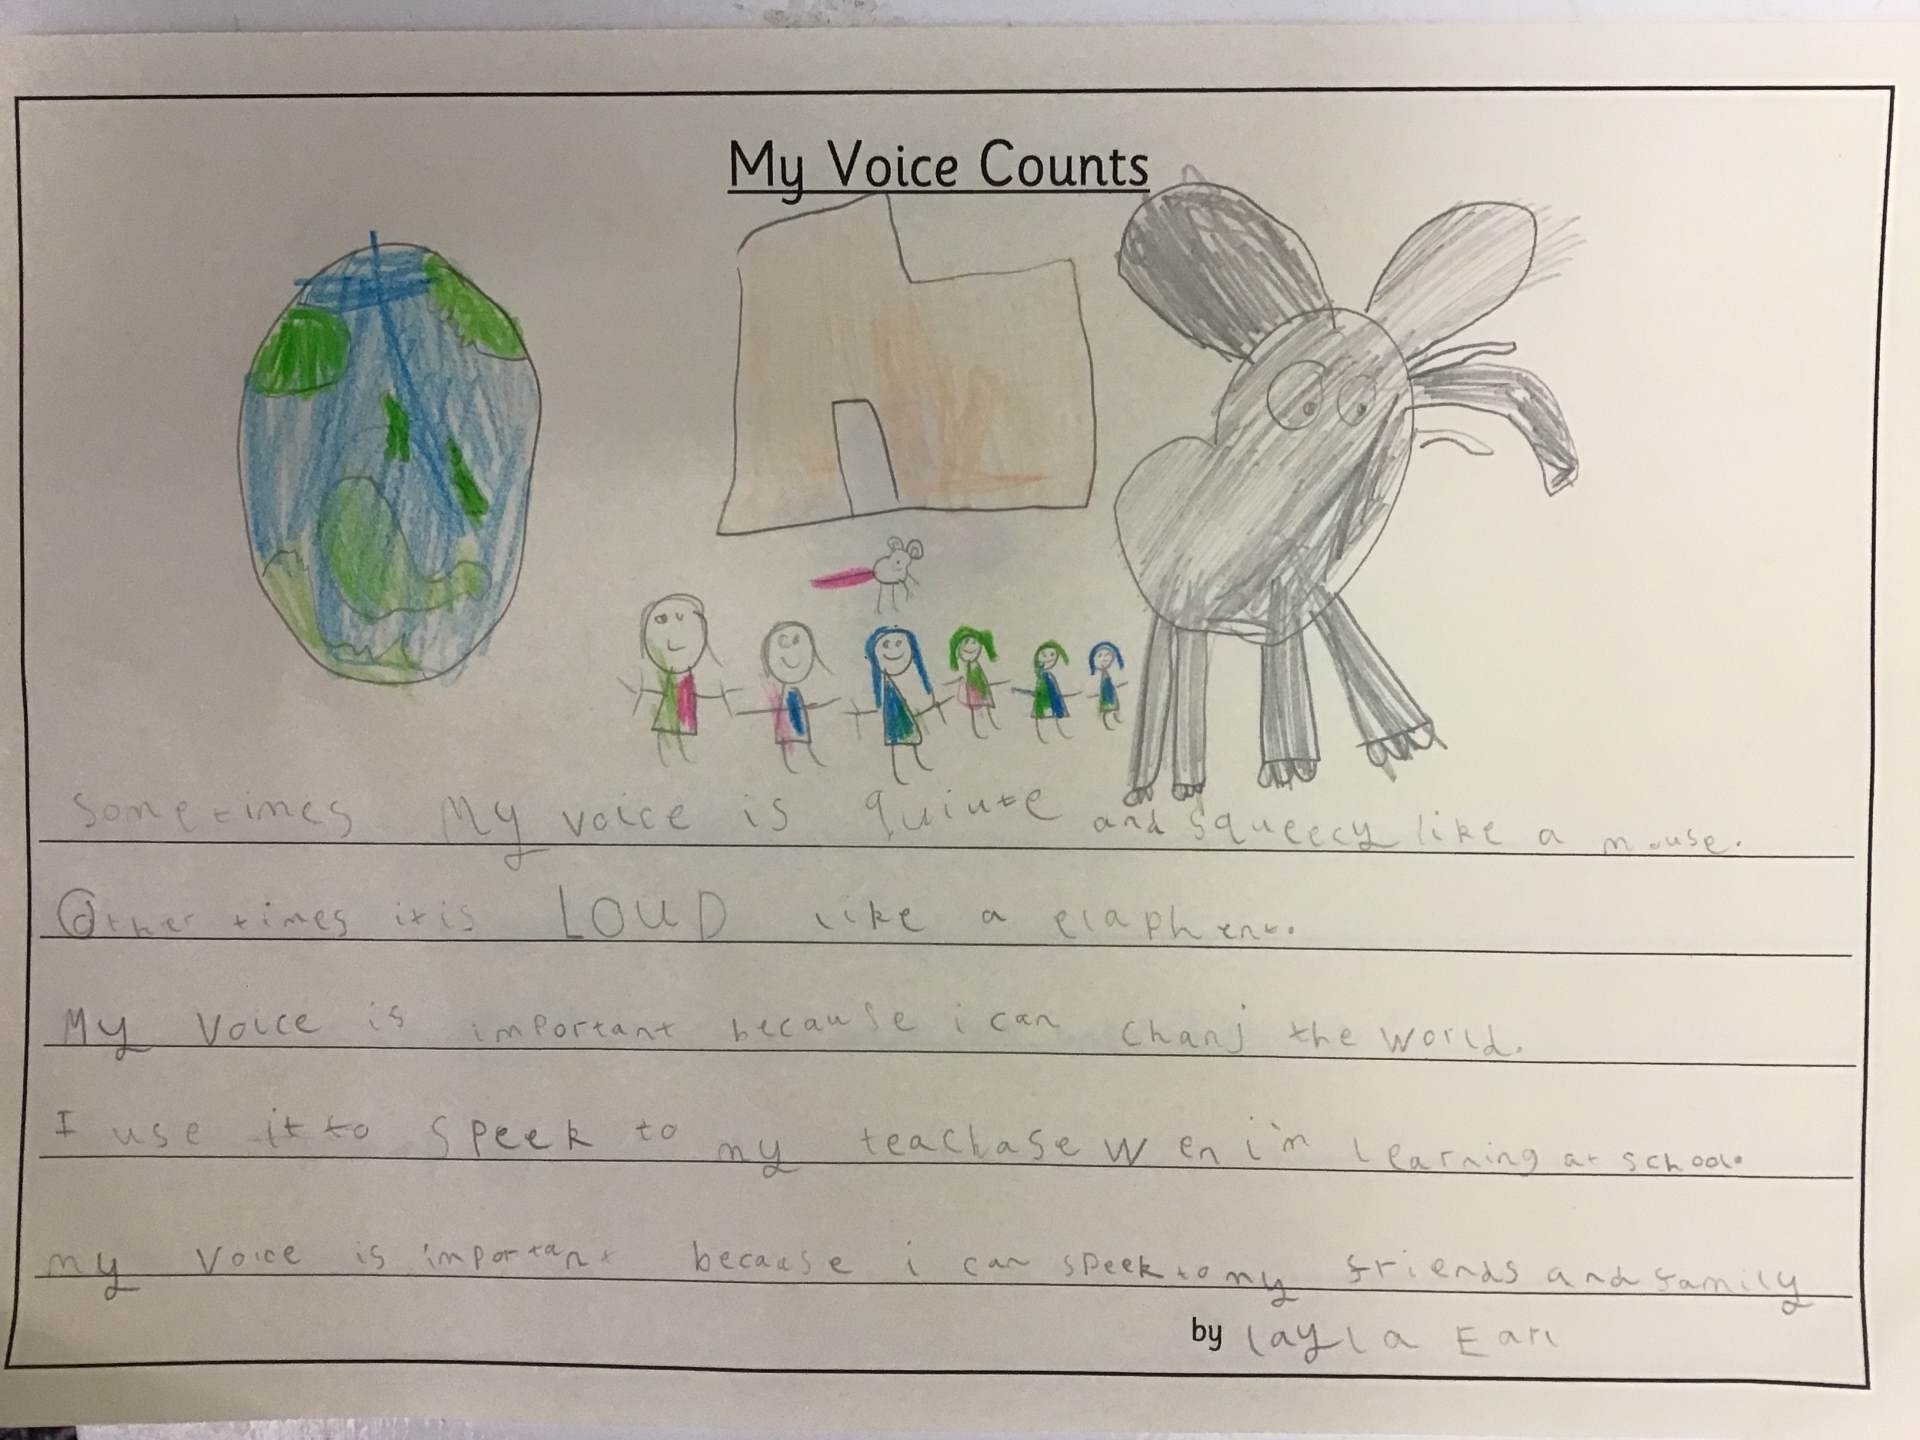 My Voice Counts
Sometimes My voice is quiute and squeecy like a mouse.
Other times it is LOUD like a elaphent.
My voice is important because i can chanj the world.
I use it to speek to my teachase wen i'm learning at school.
my voice is important because i can speek to my friends and family
by layla Earl